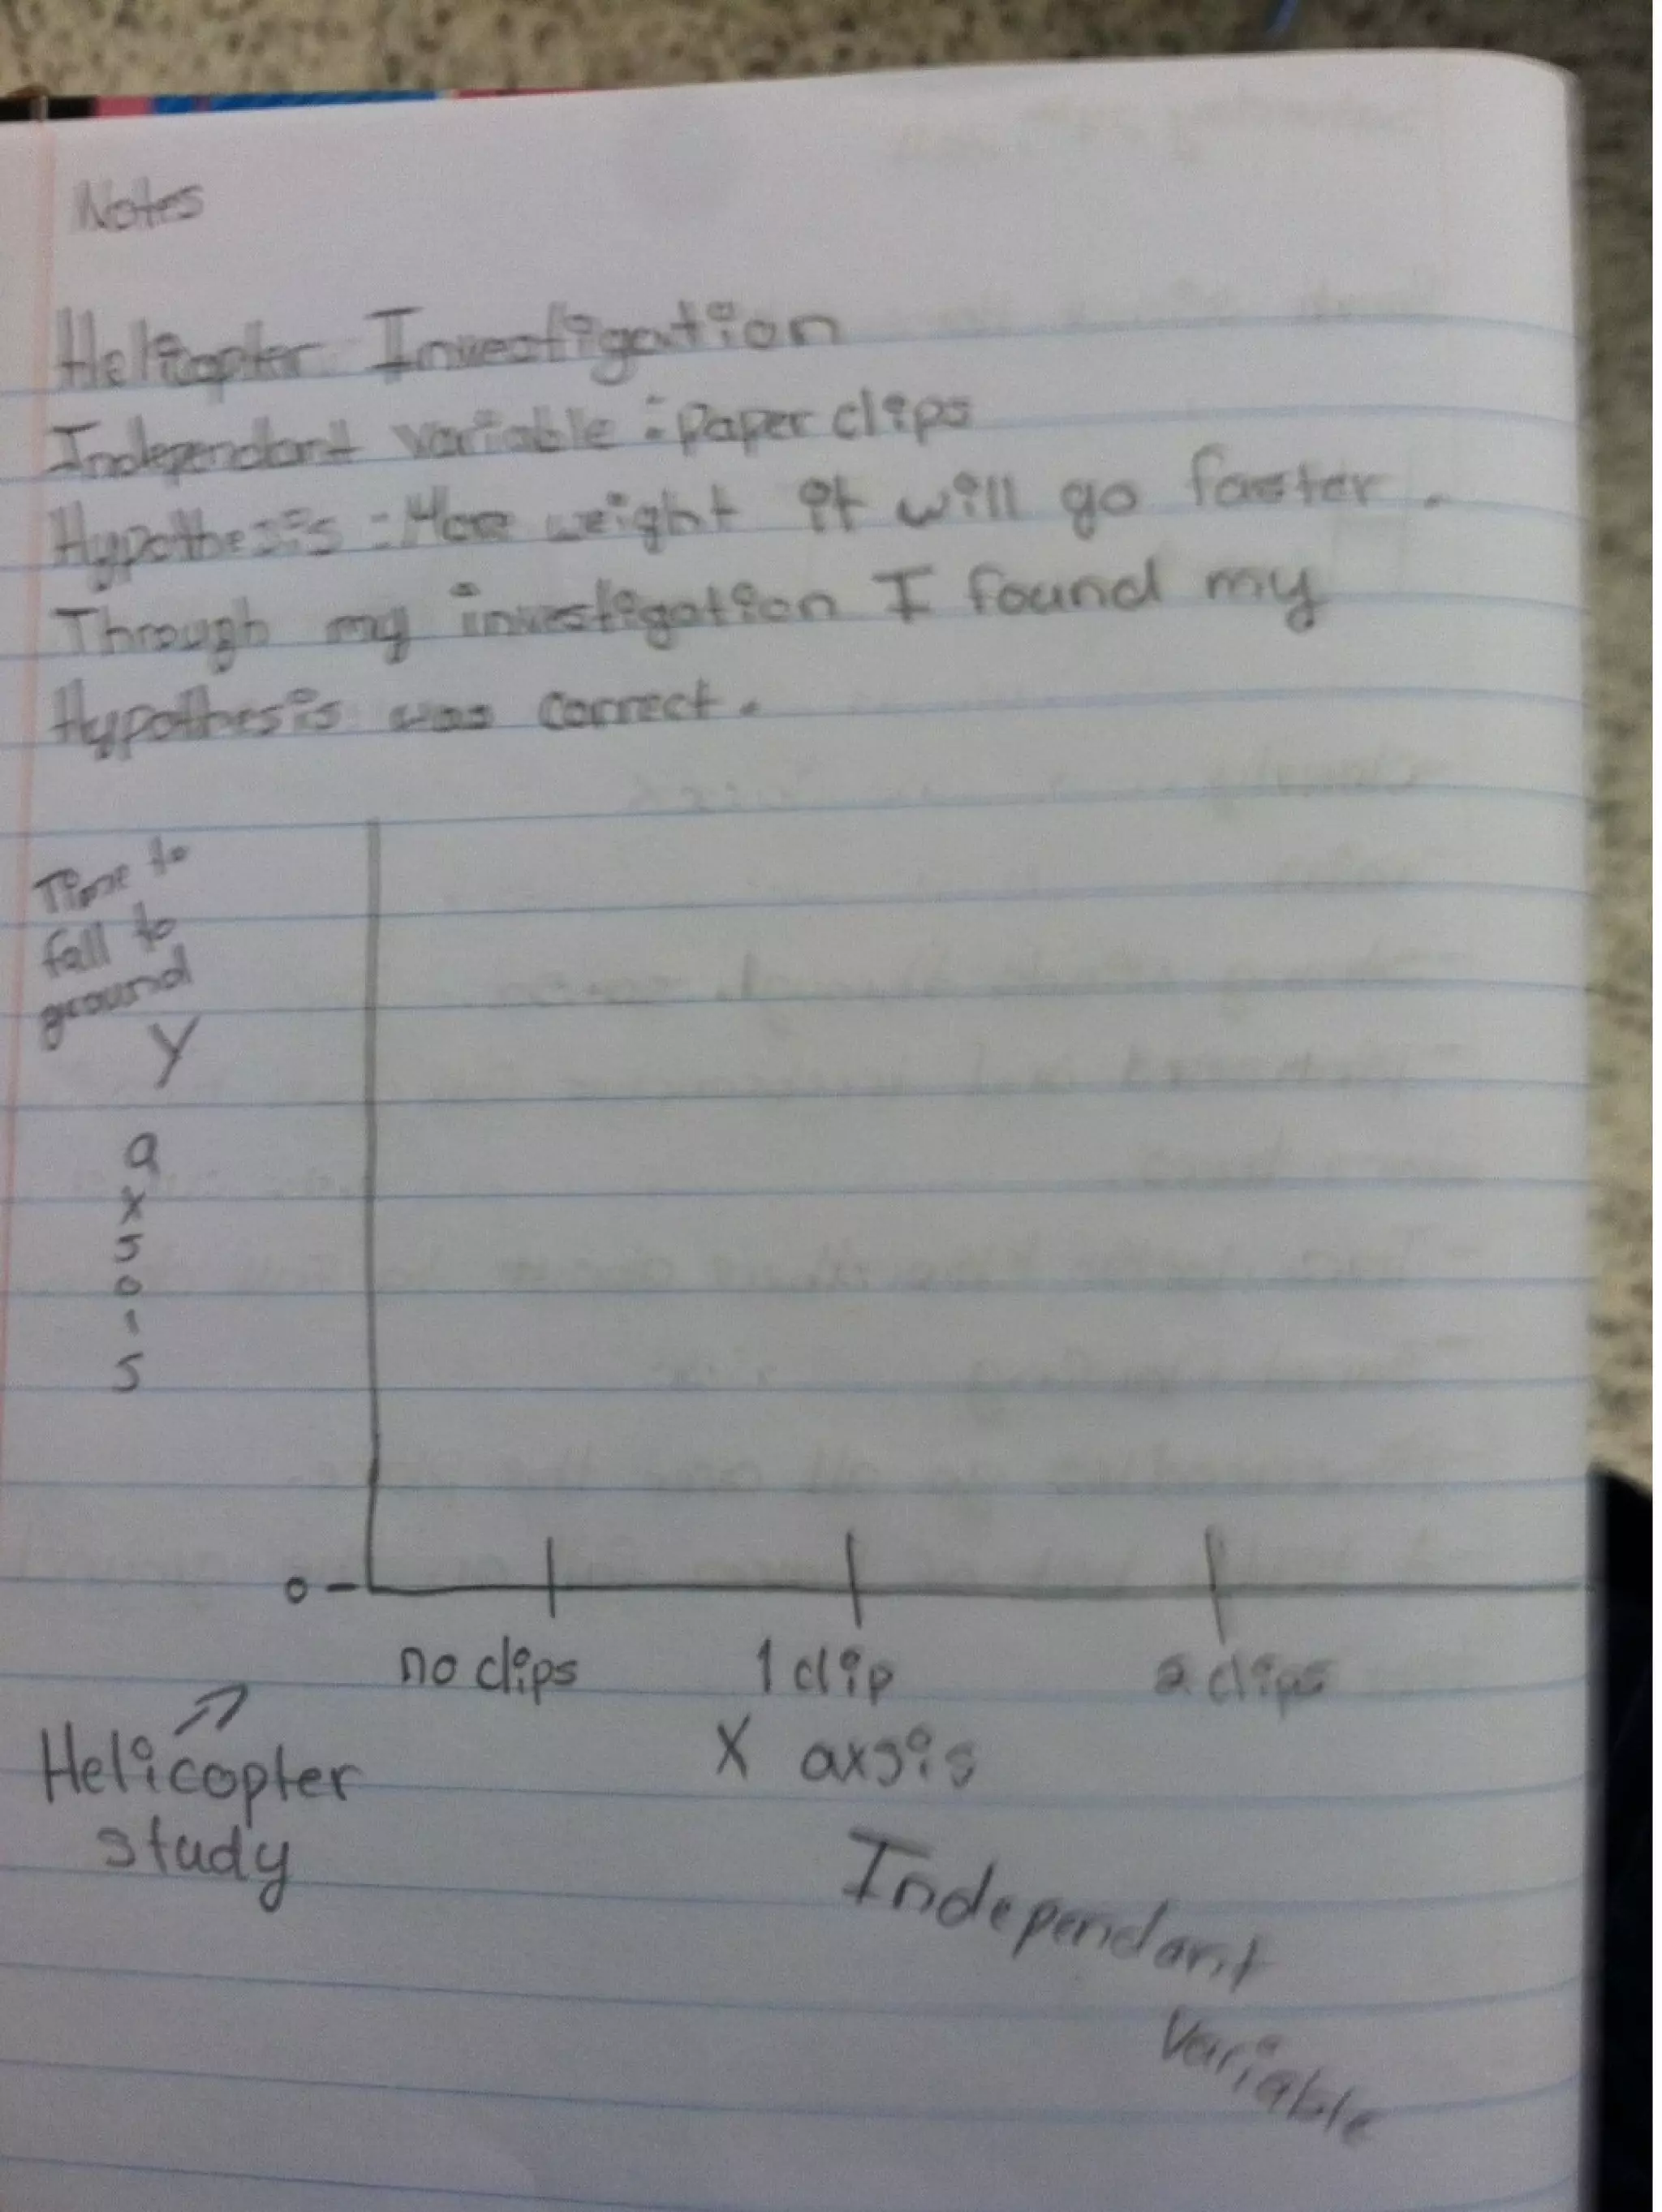 Notes
Helicopter Investigation
Independant variable : paper clips
Hypothesis : More weight it will go faster.
Through my investigation I found my
Hypothesis was correct.
Time to
fall to
ground
Y
a
x
s
o
i
s
0
no clips
1 clip
2 clips
X axsis
Helicopter
study
Independant
Variable